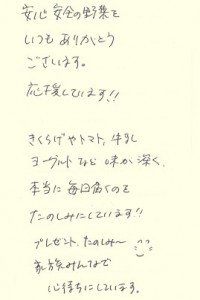 安心安全の野菜を
いつもありがとう
ございます。
応援しています!!
きくらげやトマト、牛乳
ヨーグルトなど味が深く、
本当に毎日届くのを
たのしみにしています!!
プレゼント、たのしみ〜
家族みんなで
心待ちにしています。